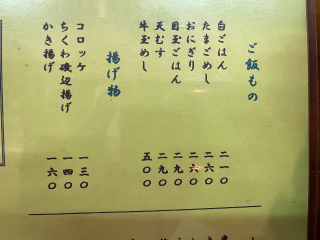 ご飯もの
白ごはん 二一〇
たまごめし 二六〇
おにぎり 二六〇
目玉ごはん 二九〇
天むす 二九〇
牛玉めし 五〇〇
揚げ物
コロッケ 一三〇
ちくわ磯辺揚げ 一四〇
かき揚げ 一六〇